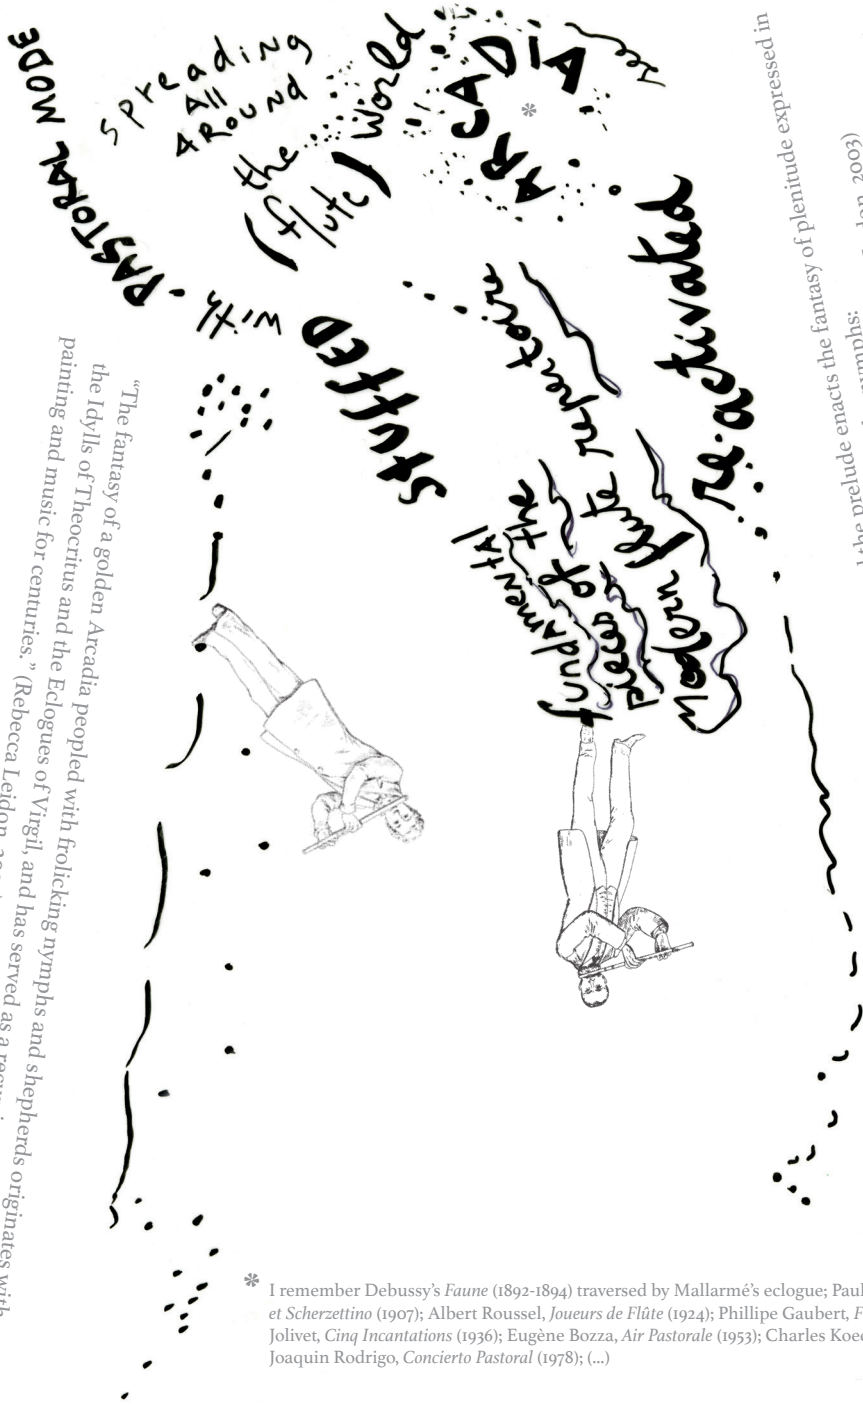 PASTORAL MODE
spreading
All
AROUND
the
World
(flute)
ARCADIA
*
see
with
STUFFED
re-activated
fundamental
pieces of the
Modern flute repertoire
the prelude enacts the fantasy of plenitude expressed in
2003)
“The fantasy of a golden Arcadia peopled with frolicking nymphs and shepherds originates with
the Idylls of Theocritus and the Eclogues of Virgil, and has served as a
painting and music for centuries.” (Rebecca Leidon,
* I remember Debussy’s Faune (1892-1894) traversed by Mallarmé’s eclogue; Paul
et Scherzettino (1907); Albert Roussel, Joueurs de Flûte (1924); Phillipe Gaubert, F
Jolivet, Cinq Incantations (1936); Eugène Bozza, Air Pastorale (1953); Charles Koe
Joaquin Rodrigo, Concierto Pastoral (1978); (...)